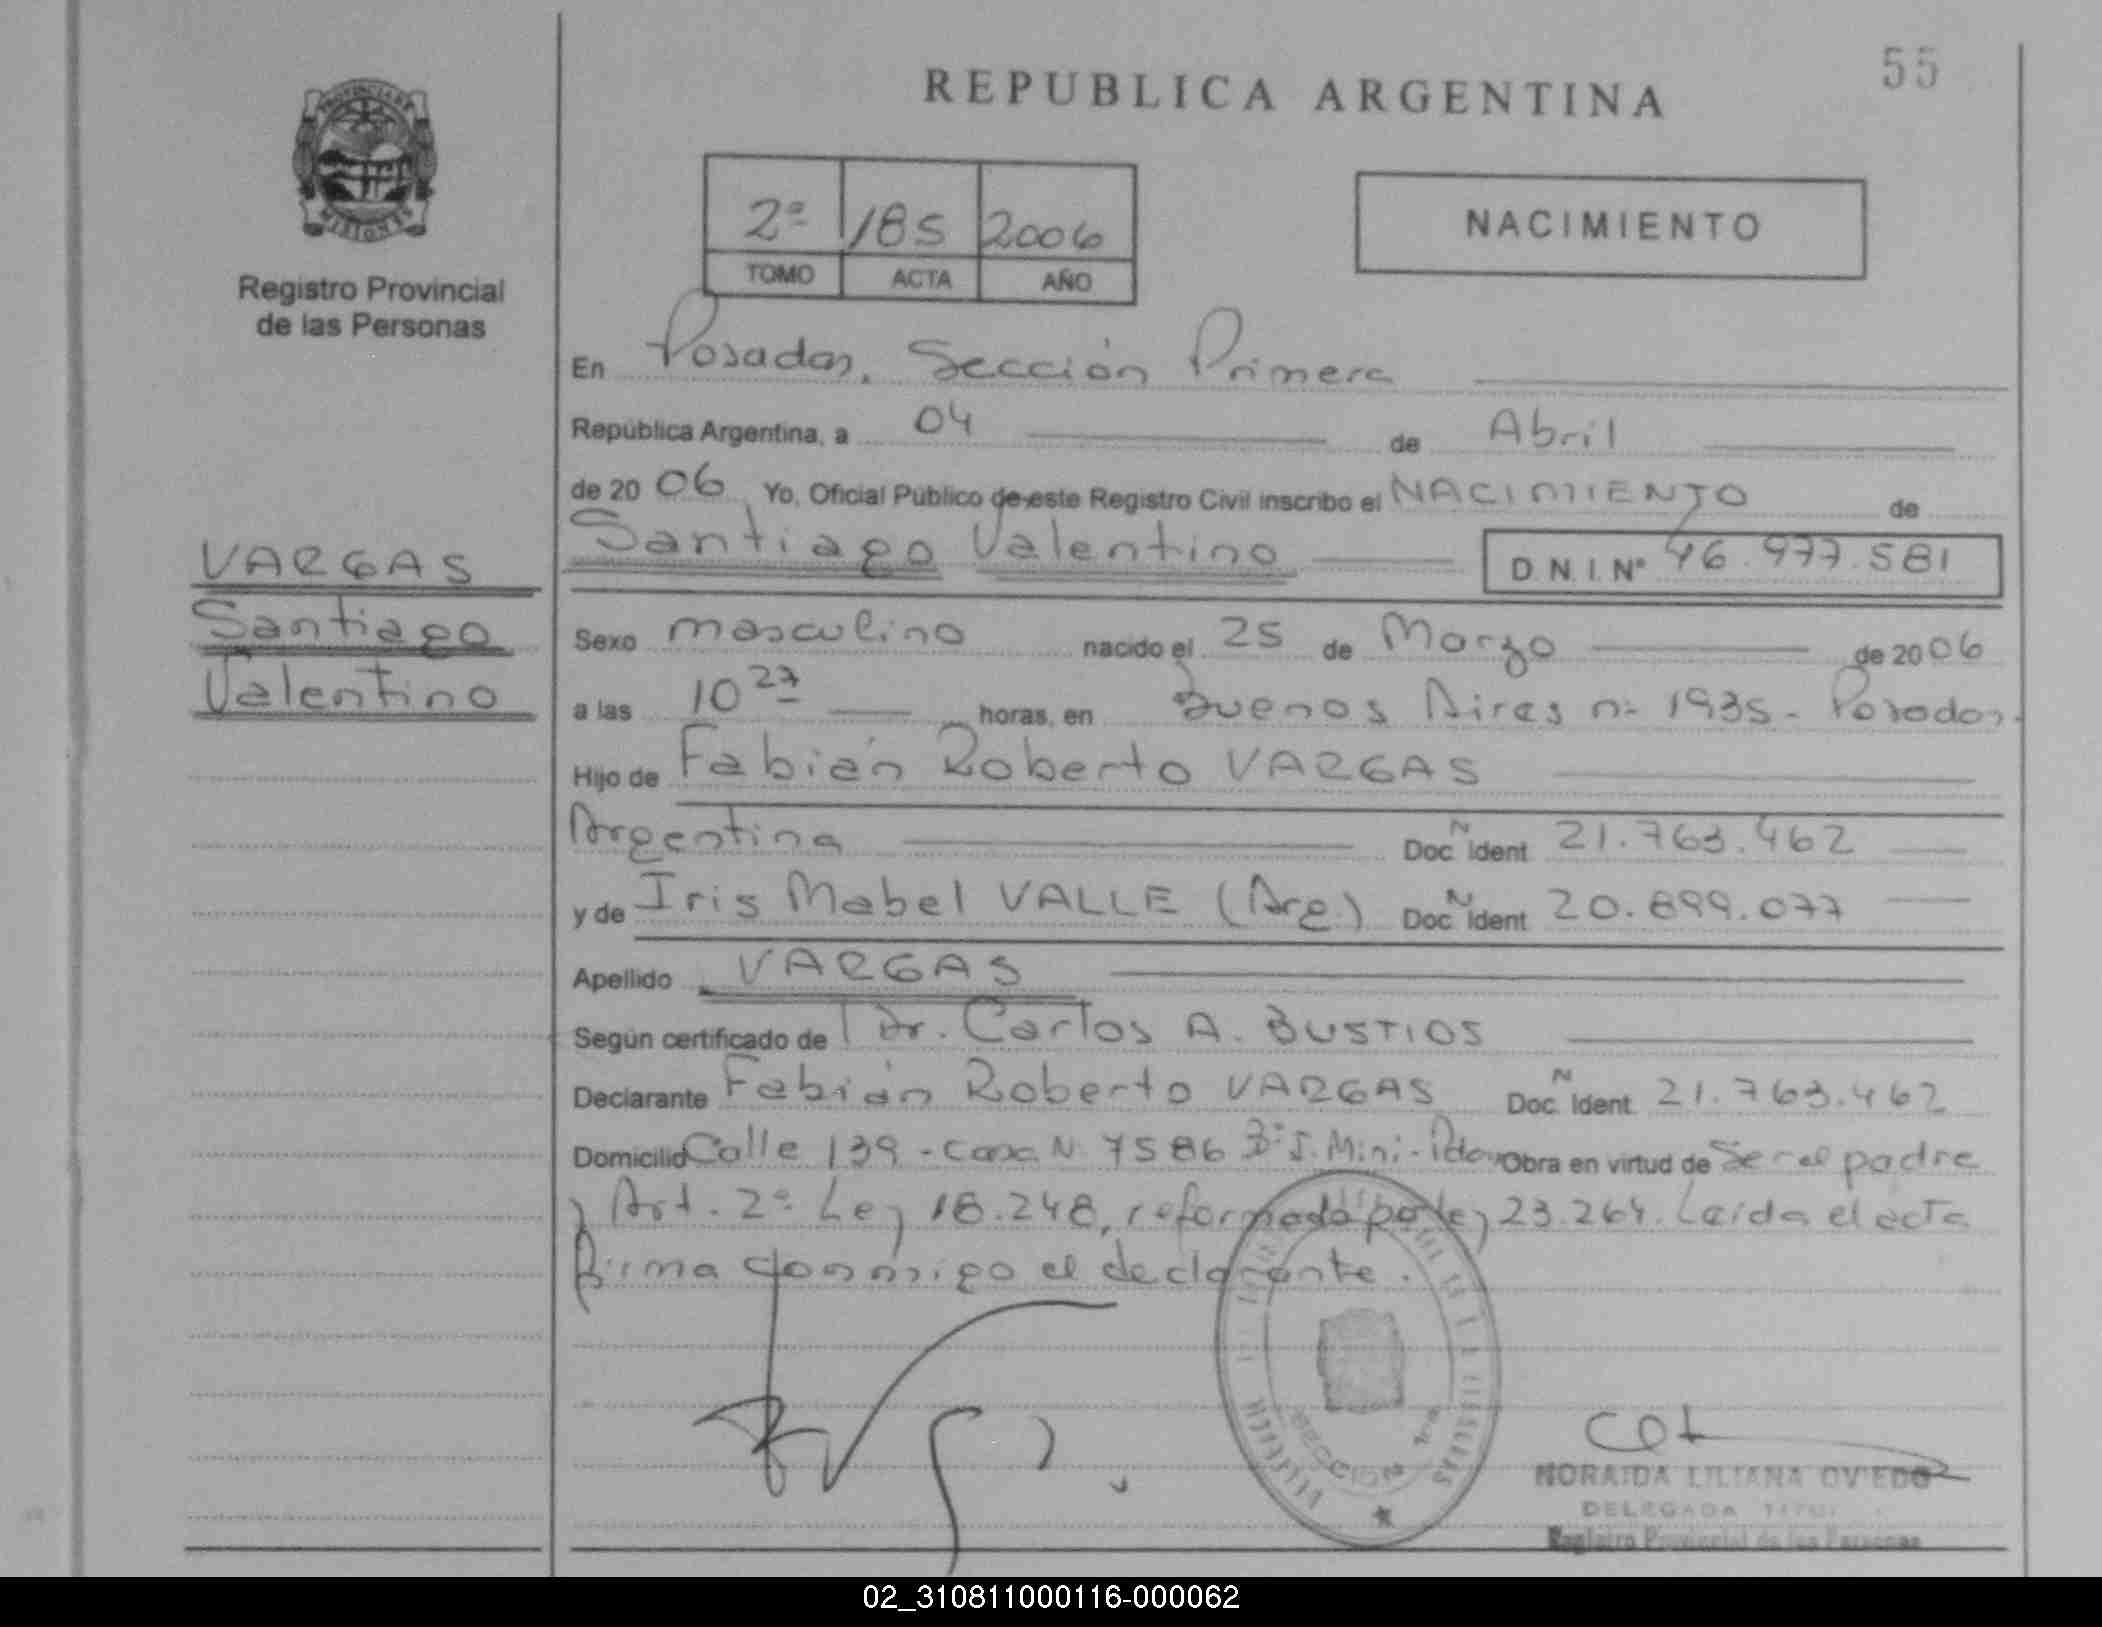 55
REPUBLICA ARGENTINA
PROVINCIA DE
MISIONES
Registro Provincial
de las Personas
2º 185 2006
TOMO ACTA AÑO
NACIMIENTO
En Posadas, Sección Primera
República Argentina, a 04 de Abril
de 20 06 Yo, Oficial Público de este Registro Civil inscribo el NACIMIENTO de
Santiago Valentino D.N.I. Nº 46.977.581
VARGAS
Santiago
Valentino
Sexo masculino nacido el 25 de Marzo de 20 06
a las 10 27 horas, en Buenos Aires nº 1935 - Posadas.
Hijo de Fabián Roberto VARGAS
Argentina Doc. Ident. Nº 21.763.462
y de Iris Mabel VALLE (Arg.) Doc. Ident. Nº 20.899.077
Apellido VARGAS
Según certificado de Dr. Carlos A. BUSTIOS
Declarante Fabián Roberto VARGAS Doc. Ident. Nº 21.763.462
Domicilio Calle 139 - Casa N 7586 Mini - Pdas Obra en virtud de Ser el padre
y Art. 2º Ley 18.248, reformada por ley 23.264. Leída el acta
firma conmigo el declarante.
SECCION 1ra
NORAIDA LILIANA OVIEDO
DELEGADA
Registro Provincial de las Personas
02_310811000116-000062